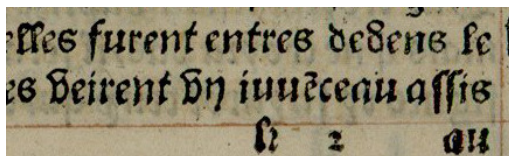 elles furent entres dedens le
es veirent vn iuuẽceau assis
h 2 au